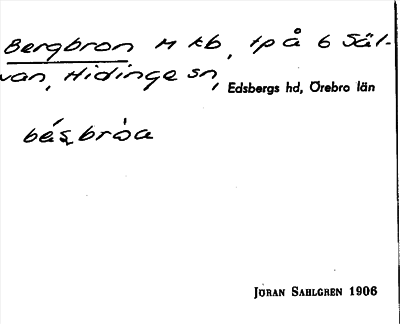 Bergbron M kb, tp å 6 Säl-
van, Hidinge sn, Edsbergs hd, Örebro län
bés̨bròa
JÖRAN SAHLGREN 1906